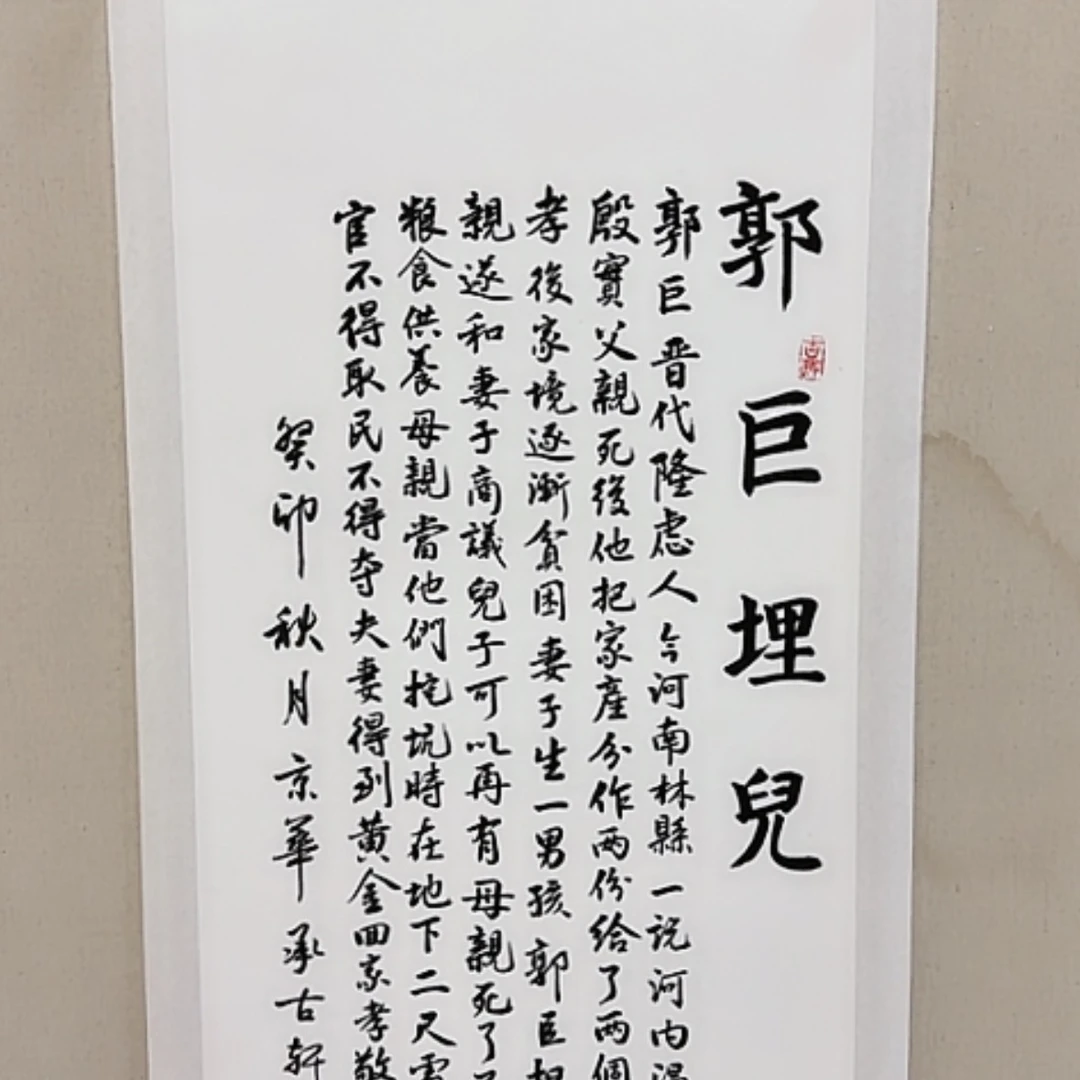 郭巨埋兒
郭巨晋代隆慮人今河南林縣一説河内温
殷實父親死後他把家產分作两份給了两個
孝後家境逐漸貧困妻子生一男孩郭巨
親遂和妻子商議兒子可以再有母親死了
粮食供養母親當他們挖坑時在地下二尺
官不得取民不得夺夫妻得到黄金回家孝敬
癸卯秋月京華承古軒